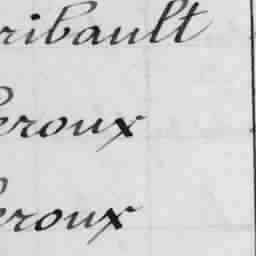 ribault
eroux
eroux